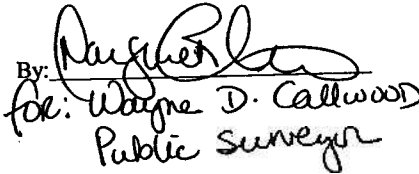 By:
for: Wayne D. Callwood
Public Surveyor